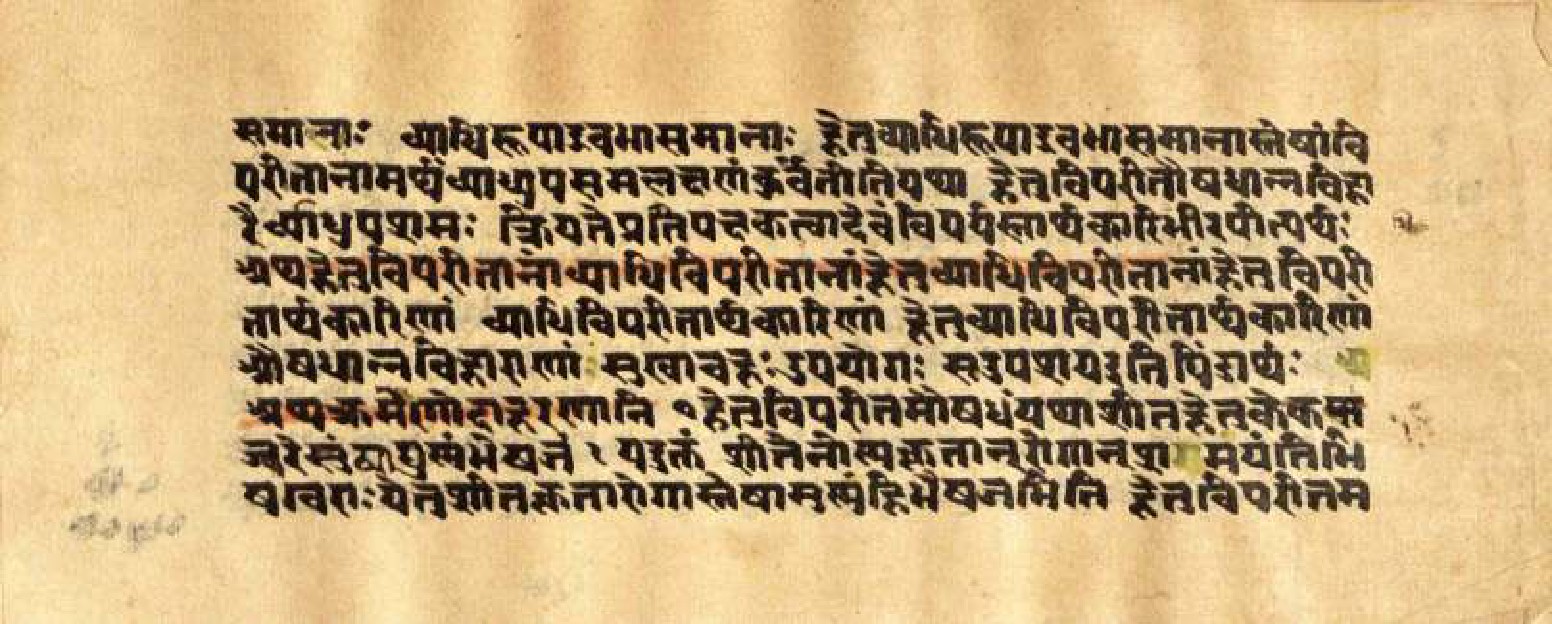 समानाः व्याधिरूपाऽवभासमानाः हेतुव्याधिरूपाऽवभासमानास्तेषांवि
परीतानामर्थंव्याध्युपसमलक्षणंकुर्वंतीतियथा हेतुविपरीतौषधान्नविहा
रैर्व्याध्युपशमः क्रियतेप्रतिपक्षकत्वादेवंविपर्यस्तार्थकारिभीरपीत्यर्थः
अथहेतुविपरीतानांव्याधिविपरीतानांहेतुव्याधिविपरीतानांहेतुविपरी
तार्थकारिणां व्याधिविपरीतार्थकारिणां हेतुव्याधिविपरीतार्थकारिणां
औषधान्नविहाराणां सुखावहःउपयोगः सउपशयइतिपिंडार्थः
अथक्रमेणोदाहरणानि १हेतुविपरीतमौषधंयथाशीतहेतुकेकफ
ज्वरेसुंठ्याद्युस्नंभेषजं १ यदुक्तं शीतेनोस्नकृतान्रोगान्श मयंतिभि
षग्विदाःयेतुशीतकृतारोगास्तेषामुस्नंहिभेषजमिति हेतुविपरीतम